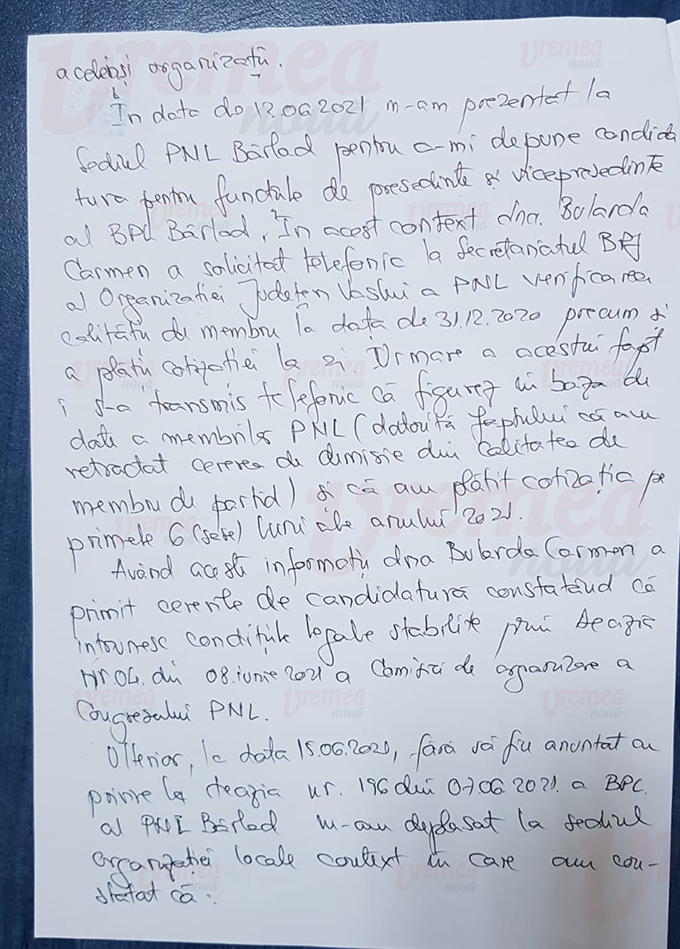 aceleiași organizații.
În data de 12.06.2021 m-am prezentat la
sediul PNL Bârlad pentru a-mi depune candida
tura pentru funcțiile de președinte și vicepreședinte
al BPL Bârlad. În acest context dna. Bularda
Carmen a solicitat telefonic la secretariatul BPJ
al Organizației Județen Vaslui a PNL verificarea
calității de membru la data de 31.12.2020 precum și
a plății cotizației la zi. Urmare a acestui fapt
i s-a transmis telefonic că figurez în baza de
date a membrilor PNL (datorită faptului că am
retractat cererea de dimisie din calitatea de
membru de partid) și că am plătit cotizația pe
primele 6 (șase) luni ale anului 2021.
Având acesti informații dna Bularda Carmen a
primit cererile de candidatură constatând că
întrunesc condițiile legale stabilite prin decizia
Nr 04. din 08.iunie 2021 a Comisiei de organizare a
Congresului PNL.
Ulterior, la data 15.06.2021, fără să fiu anunțat cu
privire la decizia nr. 196 din 07.06.2021. a BPL.
al PNL Bârlad m-am deplasat la sediul
organizației locale context în care am con-
statat că:
vremea
nouă